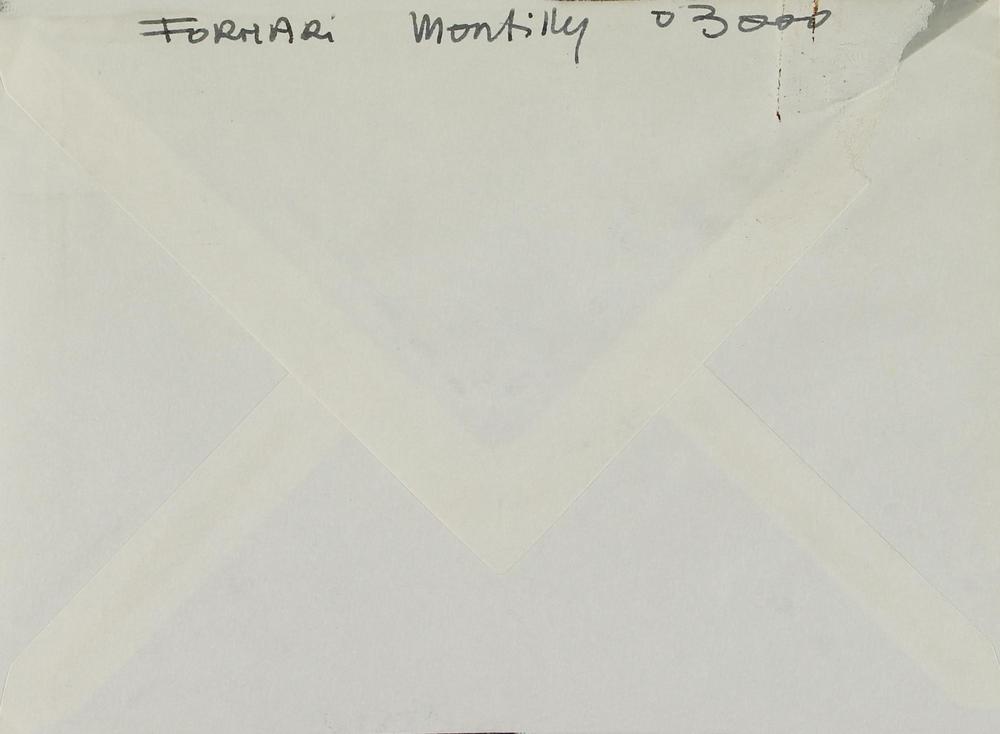 FORNARi Montilly 03000